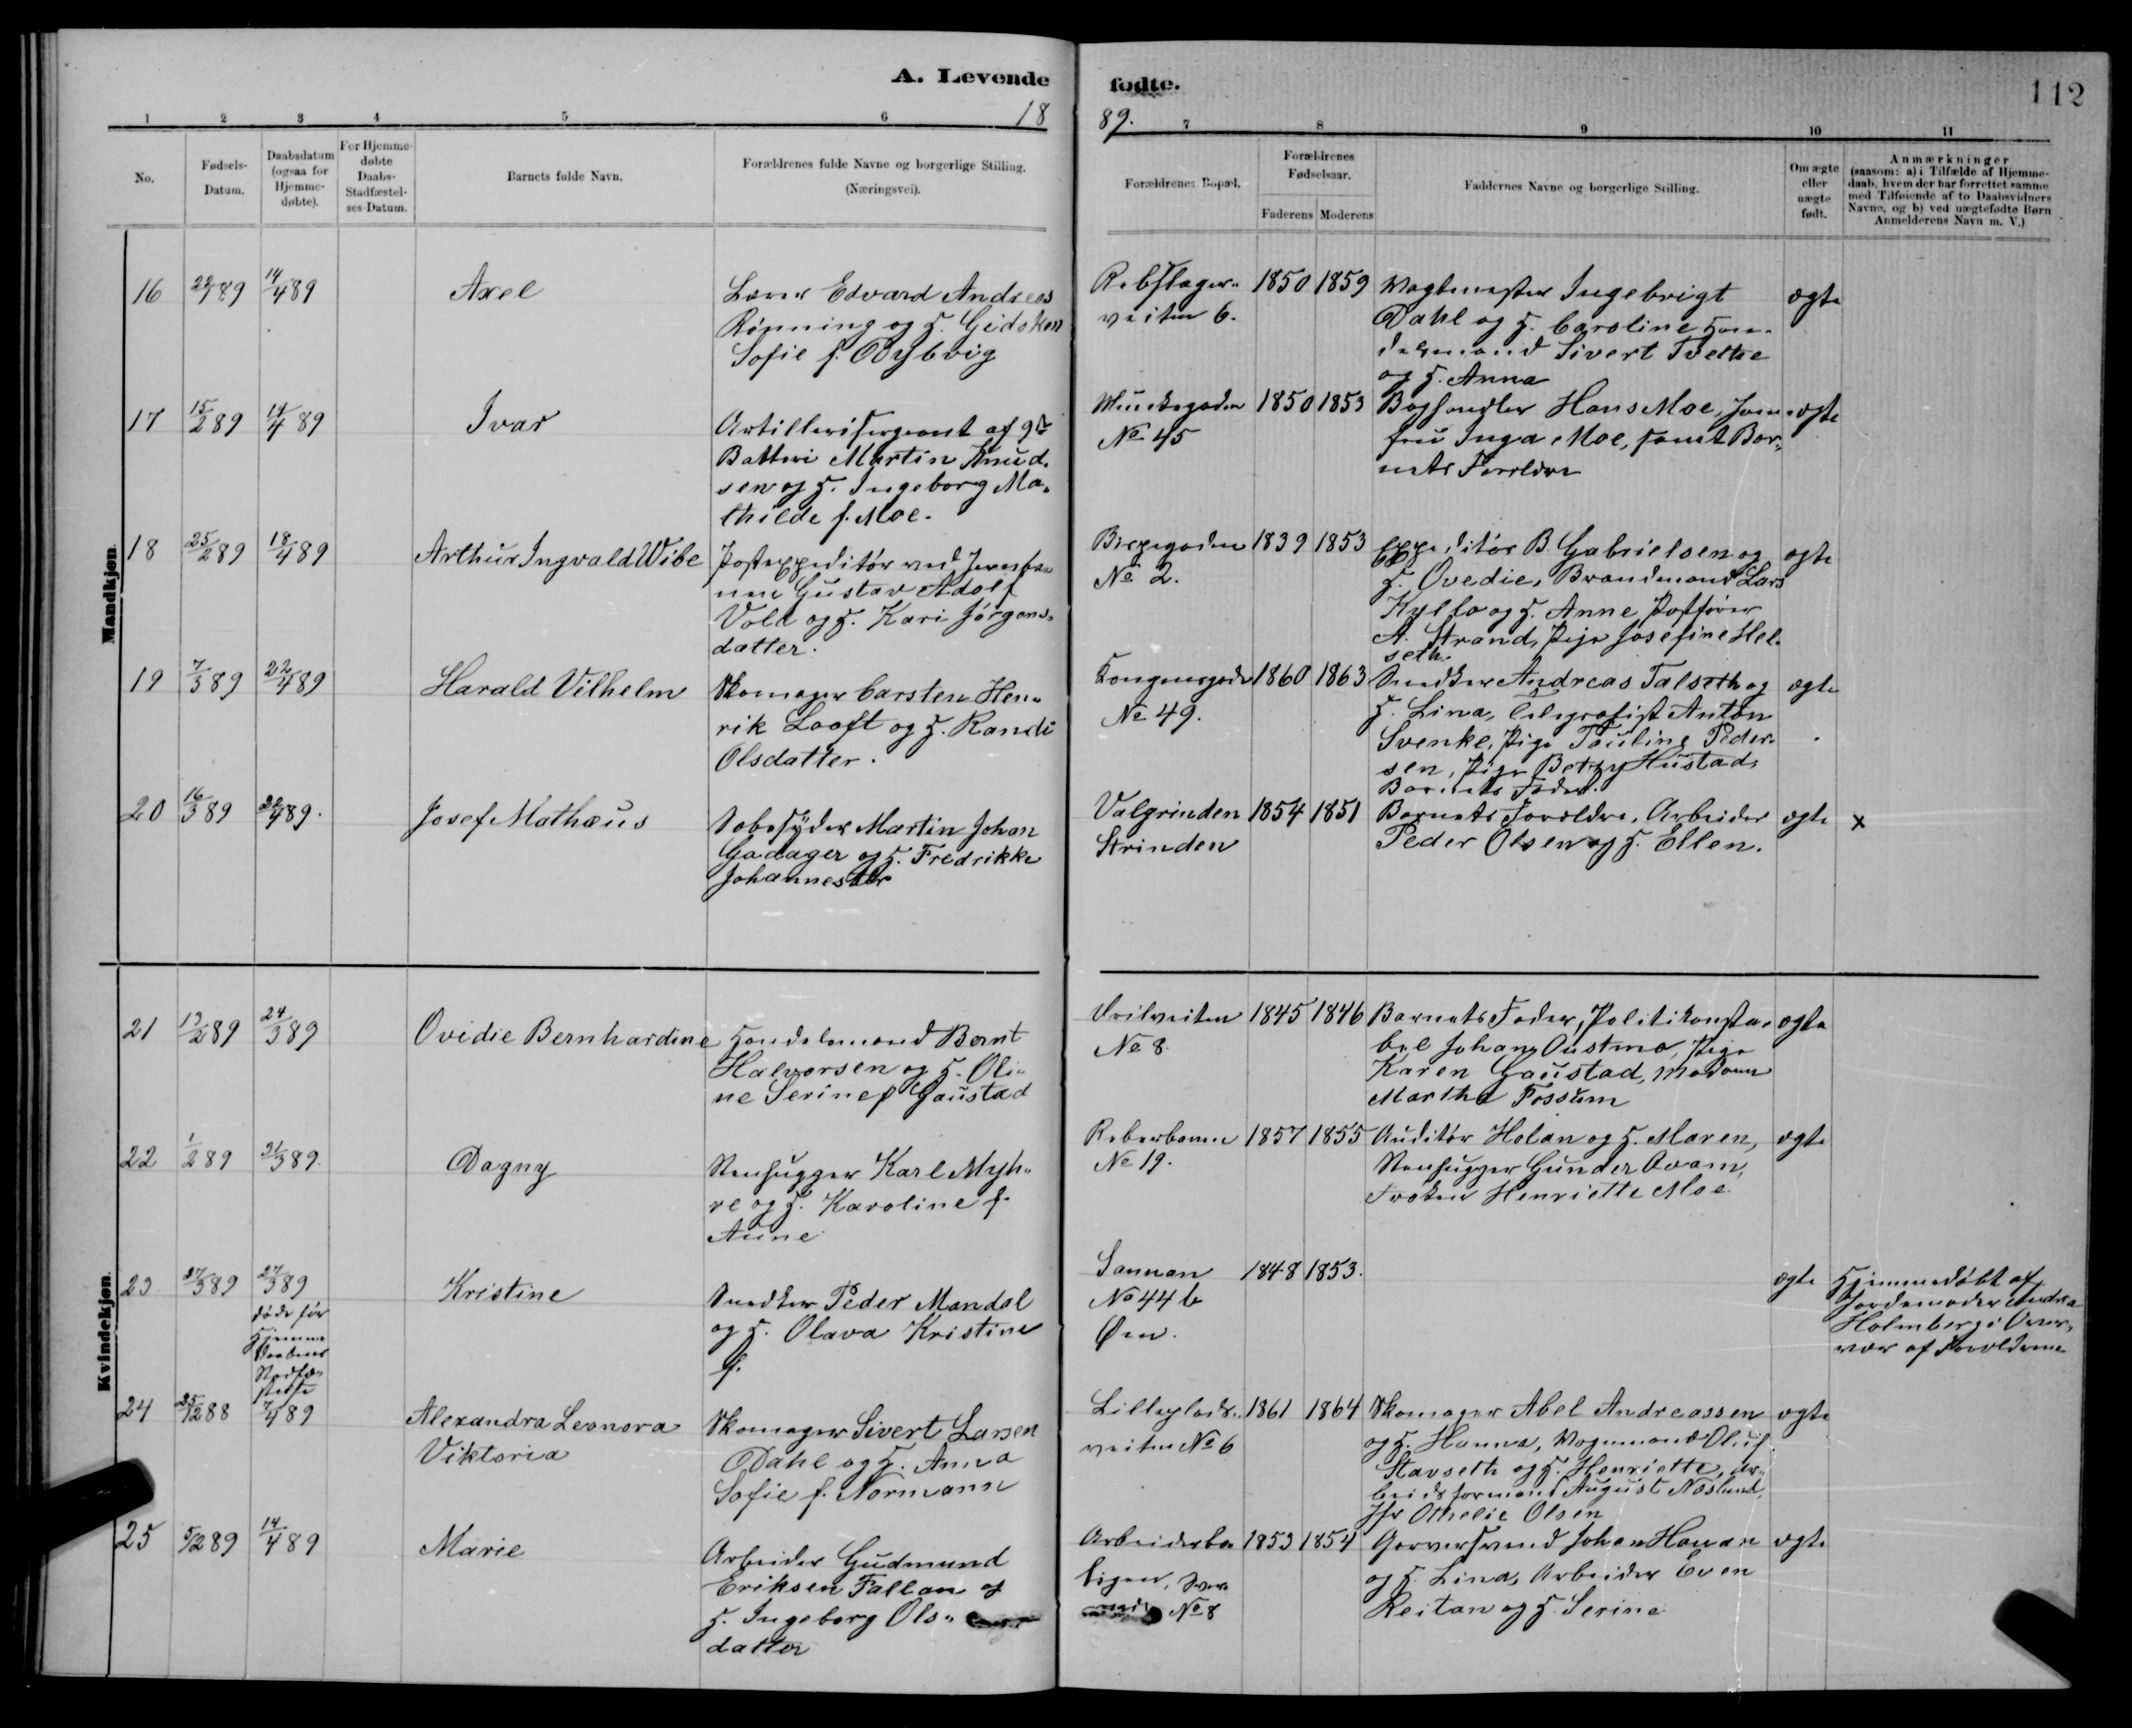 A. Levende
fødte.
112
18
89.
1 2 3 4 5 6 7 8 9 10 11
No.
Fødsels-
Datum.
Daabsdatum
(ogsaa for
Hjemme-
døbte).
For Hjemme-
døbte
Daabs-
Stadfæstel-
ses-Datum.
Barnets fulde Navn.
Forældrenes fulde Navne og borgerlige Stilling.
(Næringsvei).
Forældrenes Bopæl.
Forældrenes
Fødselsaar.
Faderens Moderens
Faddernes Navne og borgerlige Stilling.
Om ægte
eller
uægte
født.
Anmærkninger
(saasom: a) i Tilfælde af Hjemme-
daab, hvem der har forrettet samme
med Tilføiende af to Daabsvidners
Navne, og b) ved uægtefødte Børn
Anmelderens Navn m. V.)
Mandkjøn.
16 22/1 89 14/4 89
Axel
Lærer Edvard Andreas
Rönning og H. Gidsken
Sofie f. Dybvig
Rebslager-
veiten 6.
1850 1859
Vagtmester Ingebrigt
Dahl og H. Caroline Han-
delsmand Sivert Tvethe
og H. Anna
ægte
17 15/2 89 14/4 89
Ivar
Artillerisergeant af 9de
Batteri Martin Knud-
sen og H. Ingeborg Ma-
thilde f. Moe.
Munkegaden
No 45
1850 1853
Boghandler Hans Moe, Jom-
fru Inga Moe, samt Bar-
nets Forældre
ægte
18 25/2 89 18/4 89
Arthur Ingvald Wibe
Postexpeditör ved Jernba-
nen Gustav Adolf
Vold og H. Kari Jörgens-
datter.
Bispegaden
No 2.
1839 1853
Expeditör B. Gabrielsen og
H. Ovedie, Brandmand Lars
Kyllo og H. Anne, Postförer
A. Strand, Pige Josefine Hel-
seth.
ægte
19 7/3 89 22/4 89
Harald Vilhelm
Skomager Carsten Hen-
rik Looft og H. Randi
Olsdatter.
Kongensgade
No 49.
1860 1863
Snedker Andreas Talseth og
H. Lina, Telegrafist Anton
Svenke, Pige Pauline Peder-
sen, Pige Betzy Hustad,
Barnets Fader.
ægte
20 16/3 89 22/4 89.
Josef Mathæus
Sæbesyder Martin Johan
Gadager og H. Fredrikke
Johannesdtr
Valgrinden
Strinden
1854 1851
Barnets Forældre, Arbeider
Peder Olsen og H. Ellen.
ægte
x
Kvindekjøn.
21 13/2 89 24/3 89
Ovidie Bernhardine
Handelsmand Bernt
Halvorsen og H. Oli-
ne Serine f. Gaustad
No 8.
1845 1846
Barnets Fader, Politikonsta-
bel Johan Oustmo, Pige
Karen Gaustad, Madam
Martha Fossum
ægte
22 1/2 89 31/3 89.
Dagny
Stenhugger Karl Myh-
re og H. Karoline f.
Aune
Reberbanen
No 19.
1857 1855
Auditör Holan og H. Maren,
Stenhugger Gunder Avam,
Fröken Henriette Moe.
ægte
23 27/3 89 27/3 89
döde för
Hjemme
Daabens
Stadfæ-
stelse
Kristine
Snedker Peder Mandal
og H. Olava Kristine
f.
Sannan
No 44 b
Øen.
1848 1853.
ægte
Hjemmedöbt af
Jordemoder Andrea
Holmberg i Over-
vær af Forældrene
24 25/12 88 7/4 89
Alexandra Leonora
Viktoria
Skomager Sivert Larsen
Dahl og H. Anna
Sofie f. Normann
Lilleplads-
veiten No 6
1861 1864
Skomager Abel Andreassen
og H. Hanna, Vognmand Oluf
Stavseth og H. Henriette, Ar-
beidsformand August Näslund,
Jfr Othelie Olsen
ægte
25 5/2 89 14/4 89
Marie
Arbeider Gudmund
Eriksen Fallan og
H. Ingeborg Ols-
datter
Arbeiderbo-
ligen,
No 8
1853 1854
Garversvend Johan Hanan
og H. Lina, Arbeider Even
Reitan og H. Serine
ægte